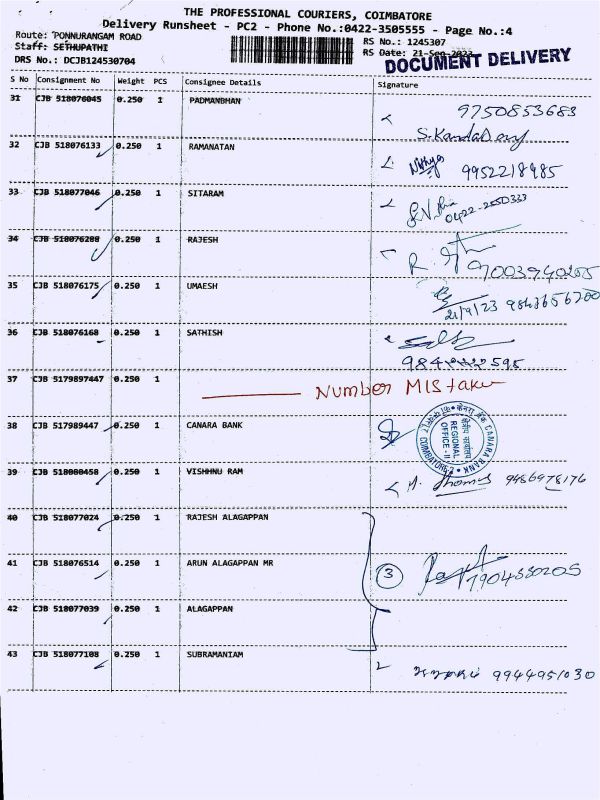 THE PROFESSIONAL COURIERS, COIMBATORE
Delivery Runsheet - PC2 - Phone No.:0422-3505555 - Page No.:4
Route: PONNURANGAM ROAD
Staff: SETHUPATHI
DRS No.: DCJB124530704
RS No.: 1245307
RS Date: 21-Sep-2023
DOCUMENT DELIVERY
S No Consignment No Weight PCS Consignee Details Signature
31 CJB 518076045 0.250 1 PADMANBHAN 9750853683
32 CJB 518076133 0.250 1 RAMANATAN 9952218985
33 CJB 518077046 0.250 1 SITARAM 0422-2550333
34 CJB 518076288 0.250 1 RAJESH 9003940205
35 CJB 518076175 0.250 1 UMAESH
21/9/23 9843656700
36 CJB 518076168 0.250 1 SATHISH
37 CJB 5179897447 0.250 1 NUMBER MIStake
38 CJB 517989447 0.250 1 CANARA BANK
CANARA BANK
REGIONAL
OFFICE-II
COIMBATORE
39 CJB 518080458 0.250 1 VISHHNU RAM 9486978176
40 CJB 518077024 0.250 1 RAJESH ALAGAPPAN
41 CJB 518076514 0.250 1 ARUN ALAGAPPAN MR 3 7904330205
42 CJB 518077039 0.250 1 ALAGAPPAN
43 CJB 518077108 0.250 1 SUBRAMANIAM 9944951030